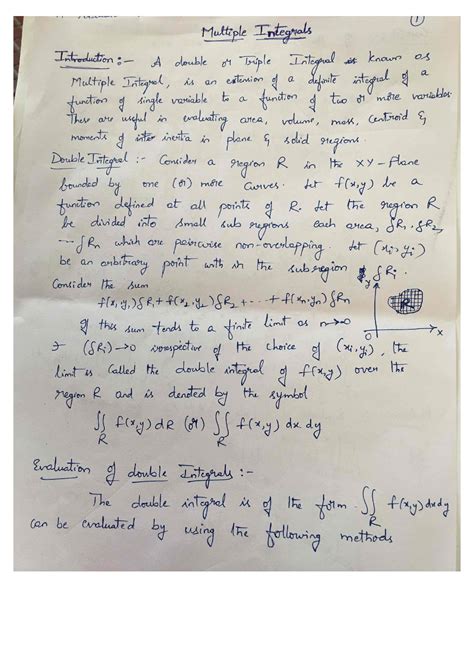 ①
Multiple Integrals
Introduction :- A double or Triple Integral is known as
Multiple Integral, is an extension of a definite integral of a
function of single variable to a function of two or more variables.
These are useful in evaluating area, volume, mass, centroid &
moments of inertia in plane & solid regions.
Double Integral :- Consider a region R in the XY-Plane
bounded by one (or) more curves. Let f(x,y) be a
function defined at all points of R. Let the region R
be divided into small sub regions each area, δR₁, δR₂
... δRn which are pairwise non-overlapping. Let (xi, yi)
be an arbitrary point with in the subregion δRi.
Consider the sum
f(x₁,y₁)δR₁ + f(x₂,y₂)δR₂ + ... + f(xn,yn)δRn
y
R
x
0
If this sum tends to a finite limit as n→∞
(δRi)→0 irrespective of the choice of (xi,yi), the
limit is called the double integral of f(x,y) over the
region R and is denoted by the symbol
∬R f(x,y) dR (or) ∬R f(x,y) dx dy
Evaluation of double Integrals :-
The double integral is of the form ∬R f(x,y) dxdy
can be evaluated by using the following methods